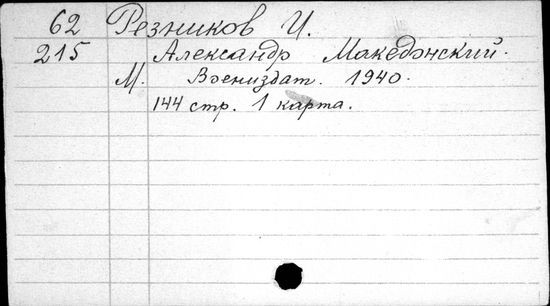 62 Резников И.
215 Александр Македонский.
М. Воениздат. 1940.
144 стр. 1 карта.